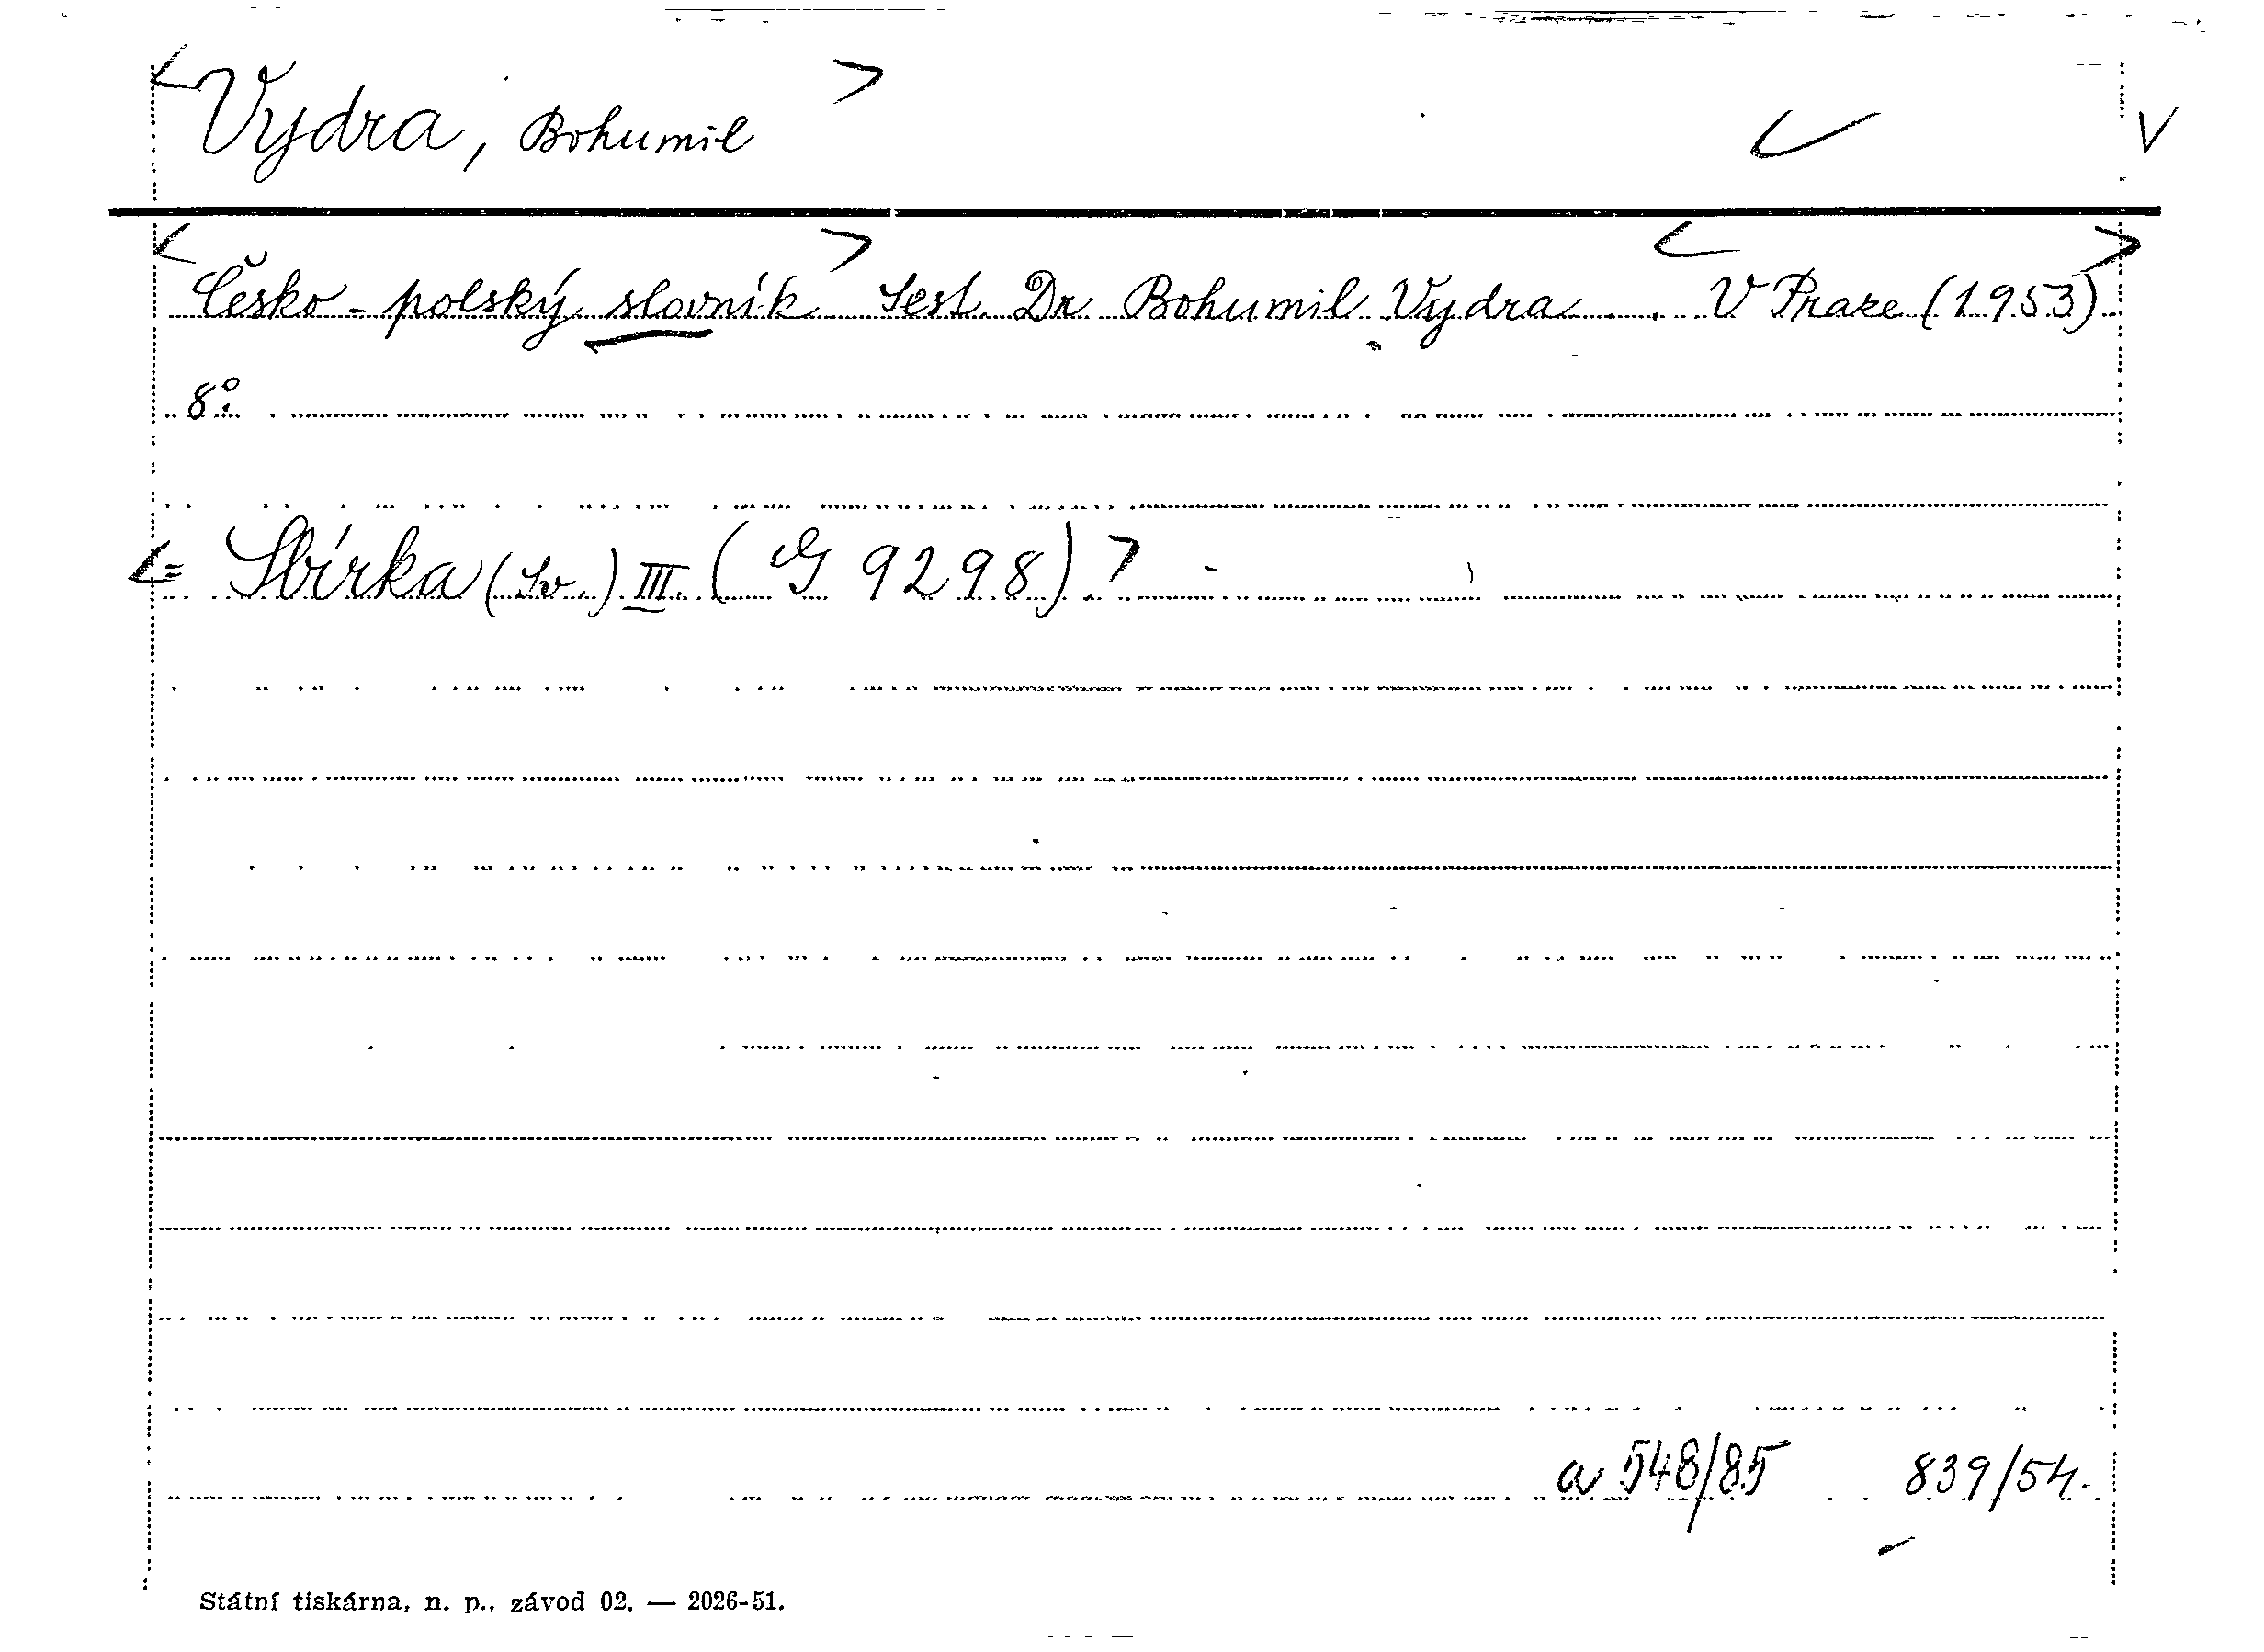 Vydra, Bohumil
Česko-polský slovník Sest. Dr Bohumil Vydra. V Praze (1953).
8°.
= Sbírka (Sv.) III. (G 9298).
a 548/85 839/54.
Státní tiskárna, n. p., závod 02. — 2026-51.